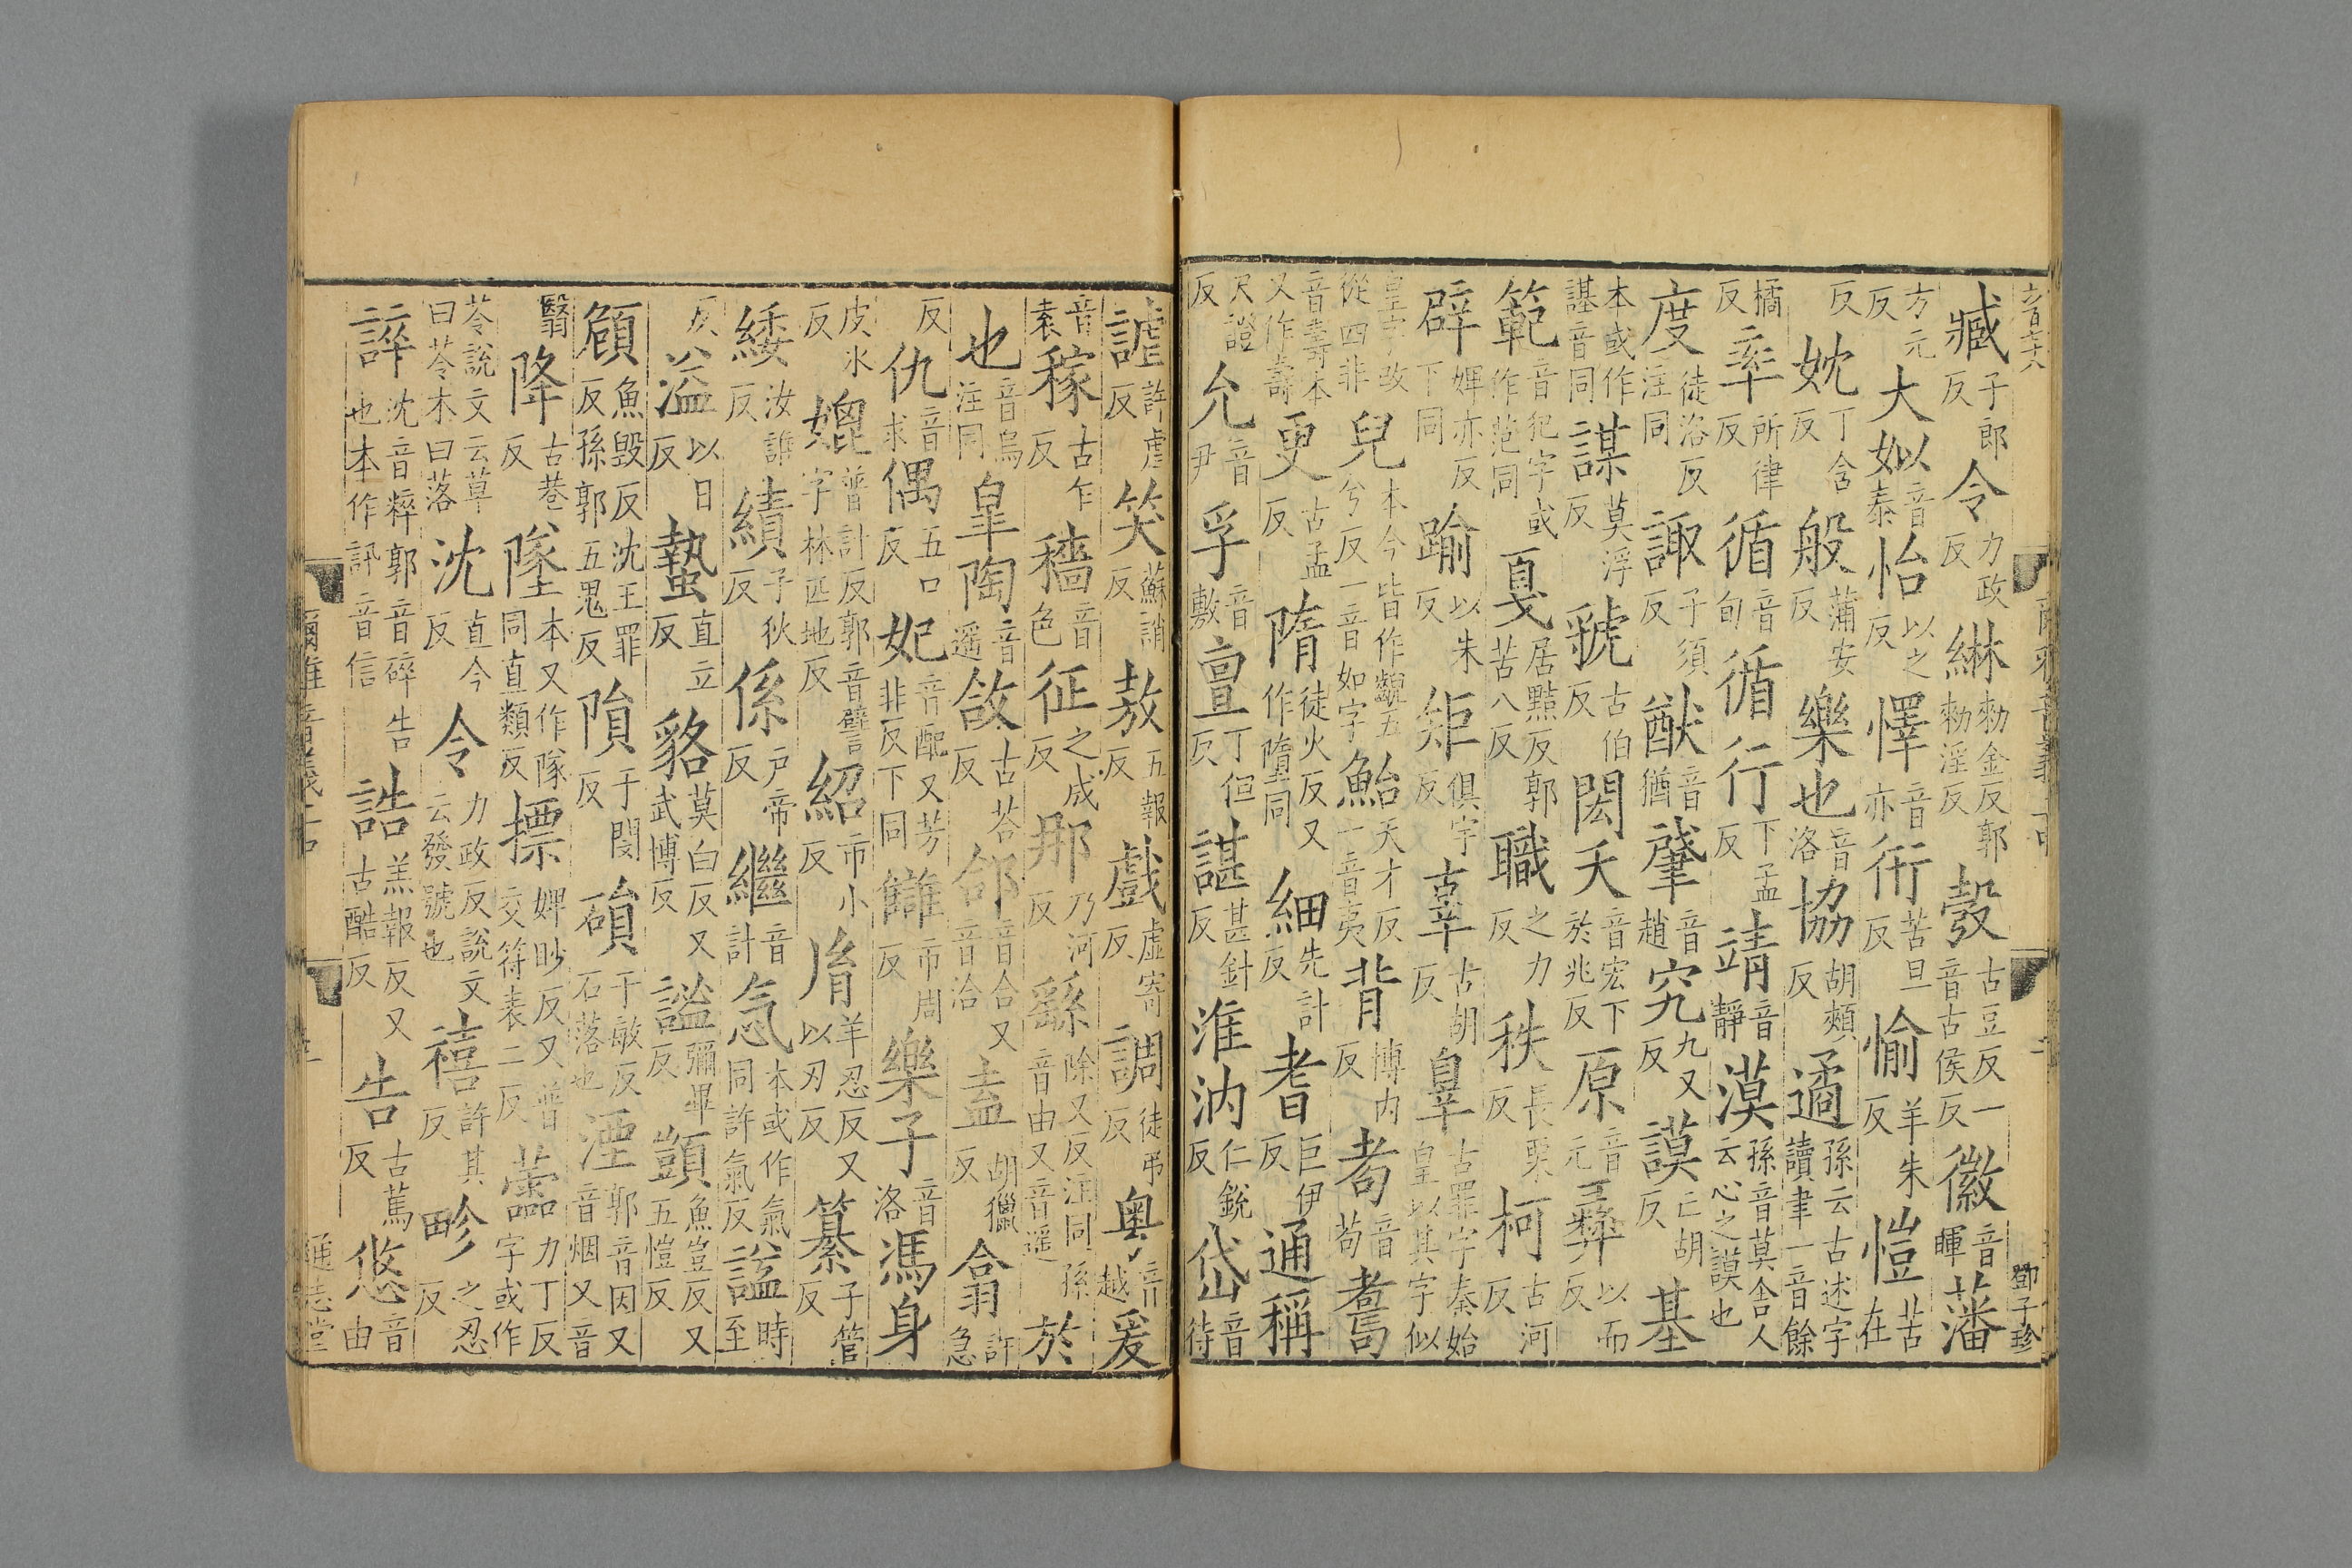 鄧子珍
臧子郎反令力政反綝勑金反郭勑淫反彀古豆反一音古侯反徽音暉藩
方元反大姒音泰怡以之反懌音亦衎苦旦反愉羊朱反愷苦在
反妉丁含反般蒲安反樂也音洛協胡頰反遹孫云古述字讀聿一音餘
橘反率所律反循音旬循行下孟反靖音靜漠孫音莫舍人云心之謨也
度徒洛反注同諏子須反猷音猶肇音趙究九又反謨亡胡反基
本或作諆音同謀莫浮反虢古伯反閎夭音宏下於兆反原音元彝以而反
範音犯字或作笵同戛居黠反郭苦八反職之力反秩長栗反柯古河反
辟婢亦反下同踰以朱反矩俱宇反辜古胡反辠古罪字秦始皇以其字似
皇字改從四非兒本今皆作齯五兮反一音如字鮐天才反一音夷背博內反耇音苟
音壽本又作壽更古孟反隋徒火反又作墮同細先計反耆巨伊反通稱
尺證反允音尹孚音敷亶丁但反諶甚針反淮汭仁銳反岱音待
謔許虐反笑蘇誚反敖五報反戲虛寄反調徒弔反粤音越爰
音袁稼古乍反穡音色征之成反那乃河反繇除又反注同孫音由又音遥於
也音烏注同皐陶音遥敆古荅反郃音合又音洽盍胡獵反翕許急
反仇音求偶五口反妃音配又芳非反下同讎市周反樂子音洛馮身
皮氷反媲普計反郭音譬字林匹地反紹市小反胤羊忍反又以刃反纂子管反
緌汝誰反績子狄反係戸帝反繼音計忥本或作氣同許氣反謚時至
反溢以日反蟄直立反貉莫白反又武博反謐彌畢反顗魚豈反又五愷反
頠魚毀反沈王罪反孫郭五鬼反隕于閔反磒于敏反石落也湮郭音因又音烟又音
翳降古巷反墜本又作隊同直類反摽婢眇反又普交符表二反蘦力丁反字或作
苓說文云草曰苓木曰落沈直今反令力政反說文云發號也禧許其反畛之忍反
誶沈音粹郭音碎告也本作訊音信誥羔報反又古酷反告古篤反悠音由
爾雅音義上
通志堂